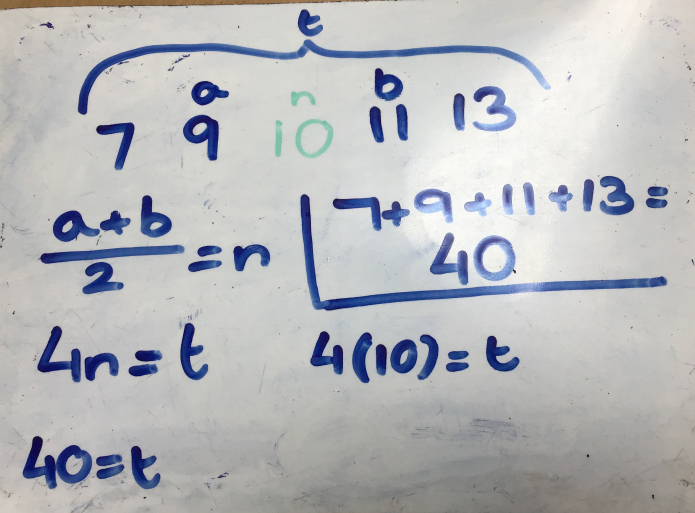 t
a n b
7 9 10 11 13
a+b/2 = n
7+9+11+13=
40
4n = t
4(10) = t
40=t